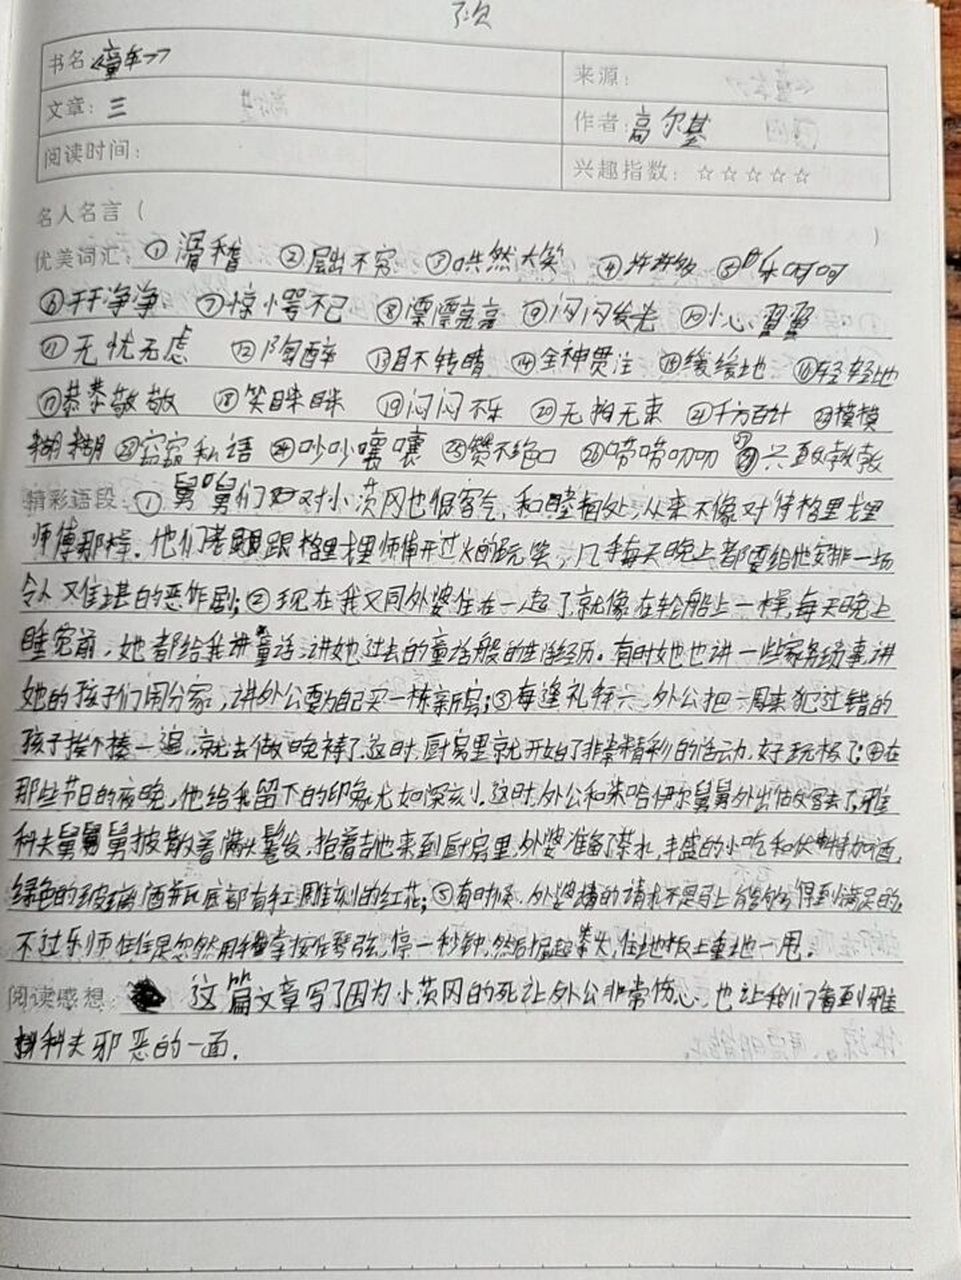 书名:《童年》 来源:
文章:三 作者:高尔基
阅读时间: 兴趣指数:☆☆☆☆☆
名人名言( )
优美词汇:①滑稽 ②层出不穷 ③哄然大笑 ④ ⑤乐呵呵
⑥干干净净 ⑦惊愕不已 ⑧漂漂亮亮 ⑨闪闪发光 ⑩小心翼翼
⑪无忧无虑 ⑫陶醉 ⑬目不转睛 ⑭全神贯注 ⑮缓缓地 ⑯轻轻地
⑰恭恭敬敬 ⑱笑眯眯 ⑲闷闷不乐 ⑳无拘无束 ㉑千方百计 ㉒模模
糊糊 ㉓窃窃私语 ㉔吵吵嚷嚷 ㉕赞不绝口 ㉖唠唠叨叨 ㉗
精彩语段:①舅舅们对小茨冈也很客气,和睦相处,从来不像对待格里戈里
师傅那样。他们老跟格里戈里师傅开过火的玩笑,几乎每天晚上都要给他安排一场
令人难堪的恶作剧;②现在我又同外婆住在一起了就像在轮船上一样,每天晚上
睡觉前,她都给我讲童话,讲她过去的童话般的生活经历。有时她也讲一些家务琐事,讲
她的孩子们闹分家,讲外公要为自己买一栋新房;③每逢礼拜六,外公把一周来犯过错的
孩子挨个揍一遍,就去做晚祷了,这时,厨房里就开始了非常精彩的活动,好玩极了;④在
那些节日的夜晚,他给我留下的印象尤如深刻。这时,外公和米哈伊尔舅舅外出做客去了,雅
科夫舅舅披散着满头鬈发,抱着吉他来到厨房里,外婆准备了茶水,丰盛的小吃和伏特加酒,
绿色的玻璃酒瓶底部有手工雕刻的红花;⑤有时候,外婆的请求不是马上能够得到满足的,
不过乐师往往是忽然用手掌按住琴弦,停一秒钟,然后握起拳头,往地板上重重地一甩。
阅读感想: 这篇文章写了因为小茨冈的死让外公非常伤心,也让我们看到雅
科夫邪恶的一面.